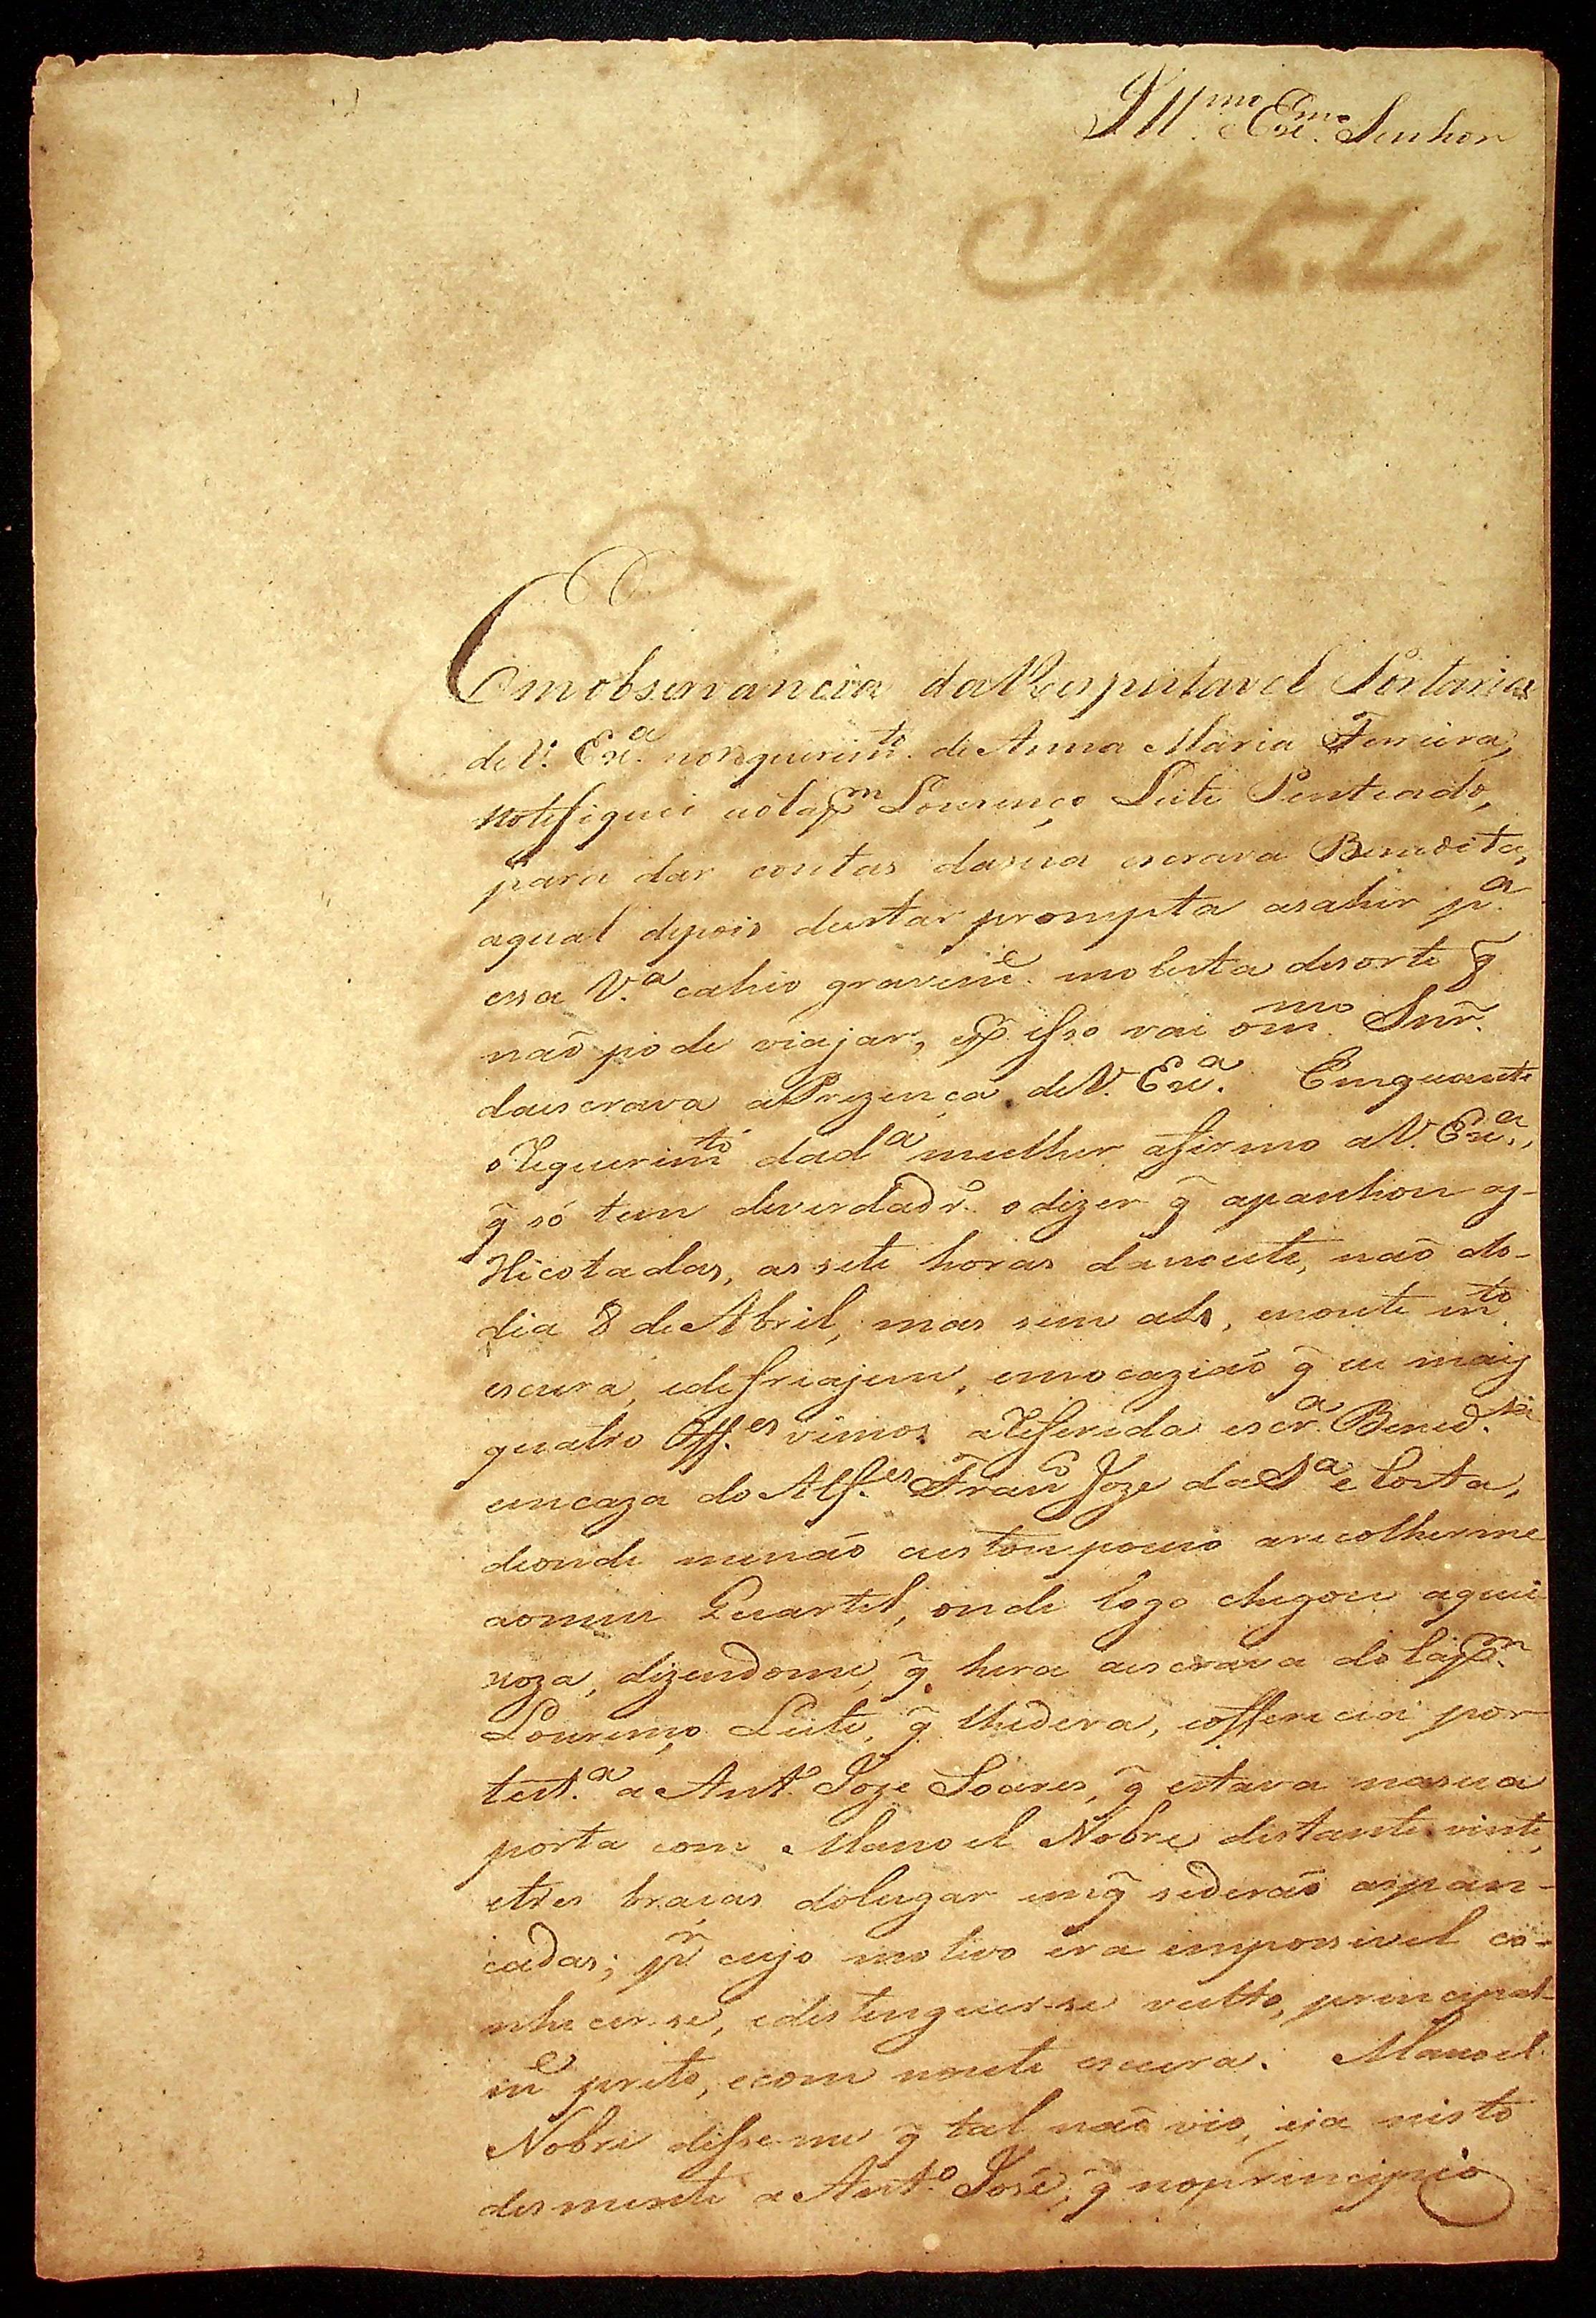 Ill.mo e Ex.mo Senhor
Em observancia da Respeitavel Portaria
de V. Ex.a no requerim.to de Anna Maria Ferreira,
notefiquei ao Cap.m Lourenço Leite Penteado,
para dar contas dasua escrava Benedita,
aqual depois deestar prompta asahir p.a
essa V.a cahio gravem.e molesta desorte q̃
naõ pode viajar, e p.r isso vai o m.mo Snr̃.
daescrava aPrezença de V. Ex.a. Emquanto
o Requerim.to dad.a mulher afirmo a V. Ex.a,
q̃ só tem deverdadr.o o dizer q̃ apanhou as
Xicotadas, as sete horas danoute, naõ do
dia 8 de Abril, mas sim a 15, enoute m.to
escura, edefriajem, em ocaziaõ q̃ eu mais
quatro Off.es vimos aReferida escr.a Bened.ta
emcaza do Alf.es Fran.co Joze da S.a e Costa,
deonde menaõ custou pouco arecolherme
aomeu Quartel, onde logo chegou aquei
xoza, dizendome, q̃ hera aescrava do Cap.m
Lourenço Leite, q̃ lhedera, eofferecia por
test.a a Ant.o Joze Soares, q̃ estava nasua
porta com Manoel Nobre distante vinte,
etres bracas dolugar emq̃ sederaõ aspan-
cadas; p.r cujo motivo era impossivel co-
nhecer-se, edestinguer-se vulto, principal-
m.e preto, ecom noute escura. Manoel
Nobre disse-me q̃ tal naõ vio, eja nisto
desmente a Ant.o José, q̃ noprincipio